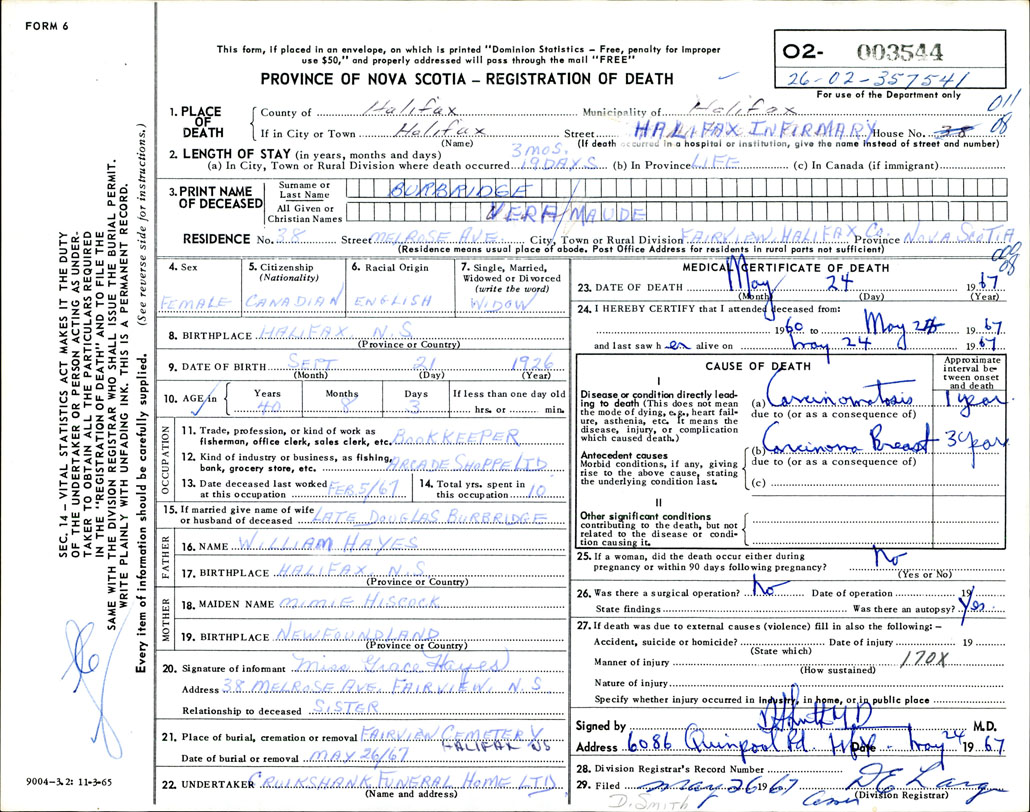 FORM 6
This form, if placed in an envelope, on which is printed "Dominion Statistics – Free, penalty for improper
use $50," and properly addressed will pass through the mail "FREE"
PROVINCE OF NOVA SCOTIA – REGISTRATION OF DEATH
02- 003544
26-02-357541
For use of the Department only
011
08
1. PLACE OF DEATH
County of Halifax Municipality of Halifax
If in City or Town Halifax Street HALIFAX INFIRMARY House No. 38
(Name) (If death occurred in a hospital or institution, give the name instead of street and number)
2. LENGTH OF STAY (in years, months and days) 3 MOS.
(a) In City, Town or Rural Division where death occurred 19 DAYS (b) In Province LIFE (c) In Canada (if immigrant)
3. PRINT NAME OF DECEASED
Surname or Last Name BURBRIDGE
All Given or Christian Names VERA/MAUDE
RESIDENCE No. 38 Street MELROSE AVE. City, Town or Rural Division FAIRVIEW HALIFAX Co. Province NOVA SCOTIA
(Residence means usual place of abode. Post Office Address for residents in rural parts not sufficient)
08
4. Sex FEMALE
5. Citizenship (Nationality) CANADIAN
6. Racial Origin ENGLISH
7. Single, Married, Widowed or Divorced (write the word) WIDOW
8. BIRTHPLACE HALIFAX, N.S.
(Province or Country)
9. DATE OF BIRTH SEPT 21 1926
(Month) (Day) (Year)
10. AGE in Years 40 Months 8 Days 3 If less than one day old hrs. or min.
OCCUPATION
11. Trade, profession, or kind of work as
fisherman, office clerk, sales clerk, etc. BOOKKEEPER
12. Kind of industry or business, as fishing,
bank, grocery store, etc. ARCADE SHOPPE LTD
13. Date deceased last worked at this occupation FEB 5/67
14. Total yrs. spent in this occupation 10
15. If married give name of wife
or husband of deceased LATE DOUGLAS BURBRIDGE
FATHER
16. NAME WILLIAM HAYES
17. BIRTHPLACE HALIFAX, N.S
(Province or Country)
MOTHER
18. MAIDEN NAME MIMIE HISCOCK
19. BIRTHPLACE NEWFOUNDLAND
(Province or Country)
20. Signature of informant Miss Grace Hayes
Address 38 MELROSE AVE. FAIRVIEW, N.S
Relationship to deceased SISTER
21. Place of burial, cremation or removal FAIRVIEW CEMETERY
HALIFAX NS
Date of burial or removal MAY 26/67
22. UNDERTAKER CRUIKSHANK FUNERAL HOME LTD
(Name and address)
MEDICAL CERTIFICATE OF DEATH
23. DATE OF DEATH May 24 1967
(Month) (Day) (Year)
24. I HEREBY CERTIFY that I attended deceased from:
1960 to May 24 1967
and last saw her alive on May 24 1967
CAUSE OF DEATH
Approximate interval between onset and death
I
Disease or condition directly leading to death (This does not mean the mode of dying, e.g., heart failure, asthenia, etc. It means the disease, injury, or complication which caused death.)
(a) Carcinomatosis 1 year
due to (or as a consequence of)
(b) Carcinoma Breast 3 years
due to (or as a consequence of)
(c)
Antecedent causes
Morbid conditions, if any, giving rise to the above cause, stating the underlying condition last.
II
Other significant conditions
contributing to the death, but not related to the disease or condition causing it.
25. If a woman, did the death occur either during
pregnancy or within 90 days following pregnancy? No
(Yes or No)
26. Was there a surgical operation? No Date of operation 19
State findings Was there an autopsy? Yes
27. If death was due to external causes (violence) fill in also the following: –
Accident, suicide or homicide? Date of injury 19
(State which)
Manner of injury 170X
(How sustained)
Nature of injury
Specify whether injury occurred in industry, in home, or in public place
Signed by M.D.
Address 6086 Quinpool Rd. Hfx Date May 24 1967
28. Division Registrar's Record Number
29. Filed May 26 1967
(Division Registrar)
D. SMITH
9004-3.2: 11-3-65
SEC. 14 – VITAL STATISTICS ACT MAKES IT THE DUTY
OF THE UNDERTAKER OR PERSON ACTING AS UNDER-
TAKER TO OBTAIN ALL THE PARTICULARS REQUIRED
IN THE "REGISTRATION OF DEATH" AND TO FILE THE
SAME WITH THE DIVISION REGISTRAR WHO SHALL ISSUE THE BURIAL PERMIT.
WRITE PLAINLY WITH UNFADING INK. THIS IS A PERMANENT RECORD.
Every item of information should be carefully supplied. (See reverse side for instructions.)